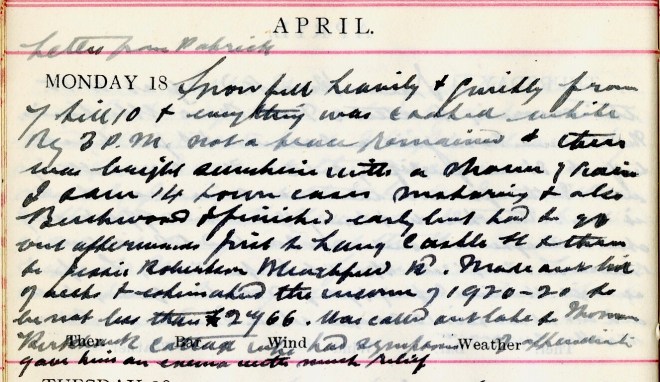 APRIL.
Letter from Patrick
MONDAY 18 Snow fell heavily & quickly from
7 till 10 & everything was coated white
By 3 P.M. not a trace remained & there
was bright sunshine with a shower of rain
I saw 14 town cases motoring & also
Birchwood & finished early but had to go
out afterwards first to Lang Castle St & then
to Jessie Robertson R. Made out list
of & estimated the income of 1920-20 to
be not less than £2466. Was called out late to Thomas
Ther. Bar. Wind Weather
had symptoms of appendicitis
gave him an enema with much relief
TUESDAY